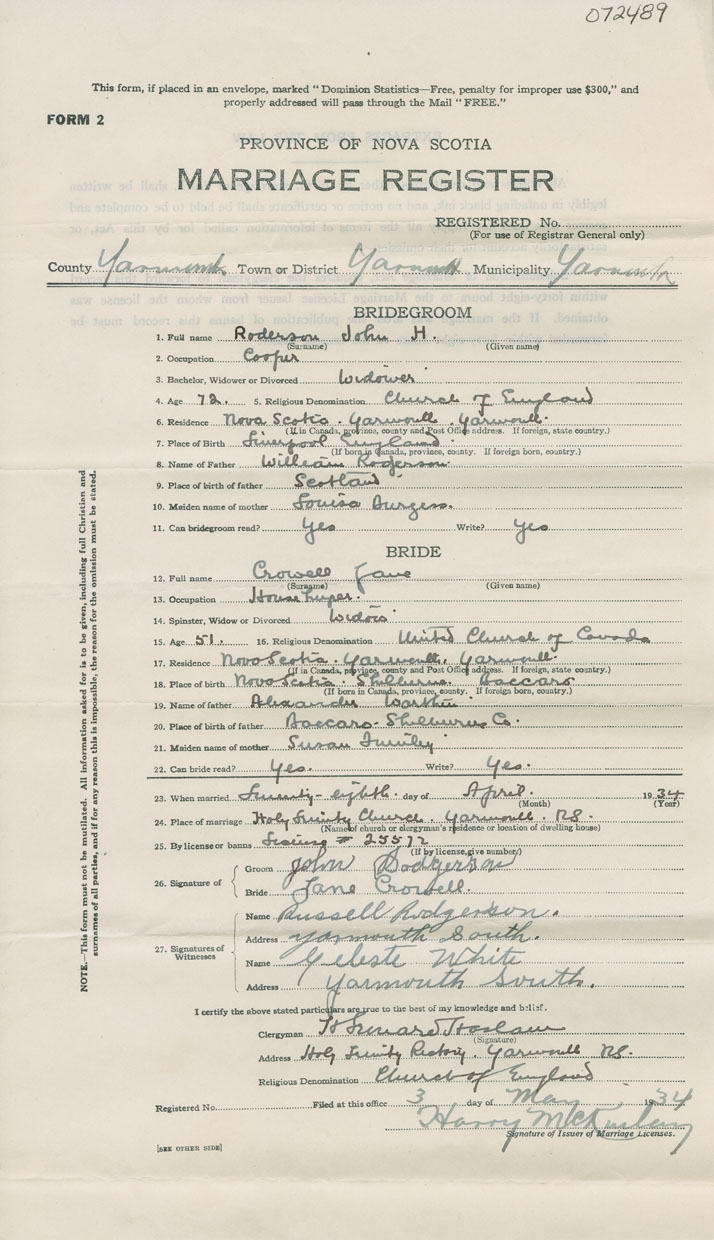 072489
This form, if placed in an envelope, marked "Dominion Statistics—Free, penalty for improper use $300," and
properly addressed will pass through the Mail "FREE."
FORM 2
PROVINCE OF NOVA SCOTIA
MARRIAGE REGISTER
REGISTERED No.
(For use of Registrar General only)
County Yarmouth Town or District Yarmouth Municipality Yarmouth
BRIDEGROOM
1. Full name Roderson John H.
(Surname) (Given name)
2. Occupation Cooper
3. Bachelor, Widower or Divorced Widower
4. Age 72. 5. Religious Denomination Church of England
6. Residence Nova Scotia. Yarmouth. Yarmouth.
(If in Canada, province, county and Post Office address. If foreign, state country.)
7. Place of Birth Liverpool England
(If born in Canada, province, county. If foreign born, country.)
8. Name of Father William Rogerson.
9. Place of birth of father Scotland
10. Maiden name of mother Louisa Burgess.
11. Can bridegroom read? Yes Write? Yes
BRIDE
12. Full name Crowell Jane
(Surname) (Given name)
13. Occupation Housekeeper.
14. Spinster, Widow or Divorced Widow
15. Age 51. 16. Religious Denomination United Church of Canada
17. Residence Nova Scotia. Yarmouth. Yarmouth.
(If in Canada, province, county and Post Office address. If foreign, state country.)
18. Place of birth Nova Scotia. Shelburne. Baccaro
(If born in Canada, province, county. If foreign born, country.)
19. Name of father Alexander
20. Place of birth of father Baccaro. Shelburne Co.
21. Maiden name of mother Susan
22. Can bride read? Yes. Write? Yes.
23. When married Twenty-eighth. day of April. 1934
(Month) (Year)
24. Place of marriage Holy Trinity Church. Yarmouth. NS.
(Name of church or clergyman's residence or location of dwelling house)
25. By license or banns License # 25572
(If by license, give number)
26. Signature of
Groom John Rodgerson
Bride Jane Crowell.
27. Signatures of Witnesses
Name Russell Rodgerson.
Address Yarmouth South.
Name Celeste White
Address Yarmouth South.
I certify the above stated particulars are true to the best of my knowledge and belief.
Clergyman Haslam
(Signature)
Address Holy Trinity Rectory. Yarmouth NS.
Religious Denomination Church of England
Registered No. Filed at this office 3 day of May 1934
Harry
Signature of Issuer of Marriage Licenses.
[SEE OTHER SIDE]
NOTE.—This form must not be mutilated. All information asked for is to be given, including full Christian and
surnames of all parties, and if for any reason this is impossible, the reason for the omission must be stated.